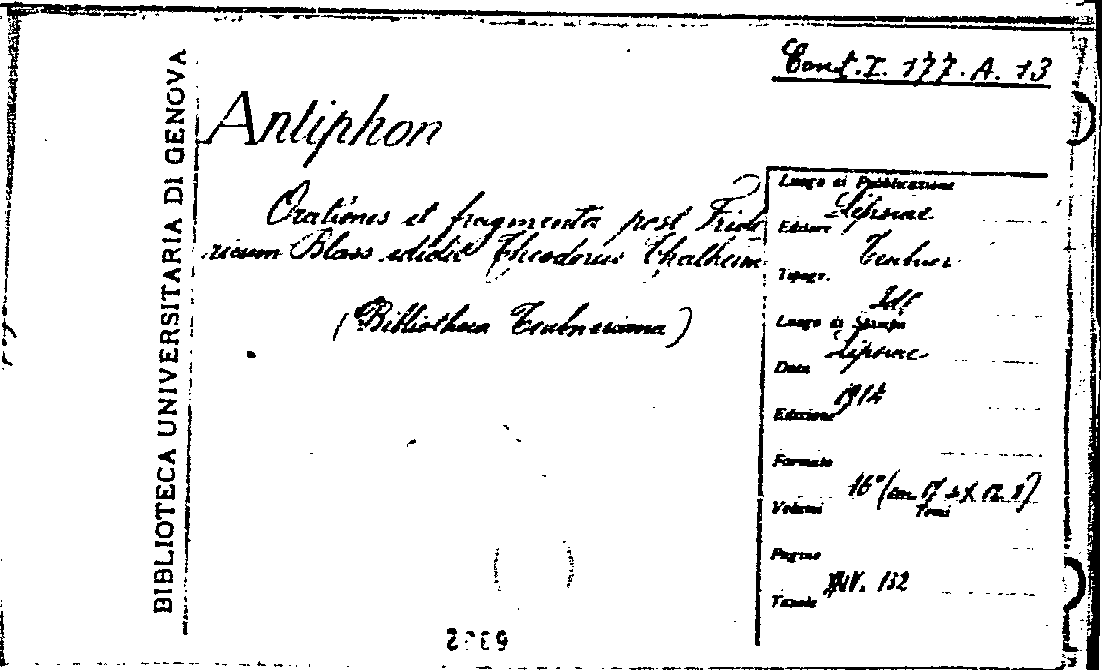 Cont. I. 177. A. 13
BIBLIOTECA UNIVERSITARIA DI GENOVA
Antiphon
Orationes et fragmenta post Fride
ricum Blass edidit Theodorus Thalheim
(Bibliotheca Teubneriana)
Luogo di Pubblicazione
Lipsiae
Editore
Teubner
Tipogr.
Id.
Luogo di Stampa
Lipsiae
Data
1914
Edizione
Formato
16° (cm
Volumi
Tomi
Pagine
132
Tavole